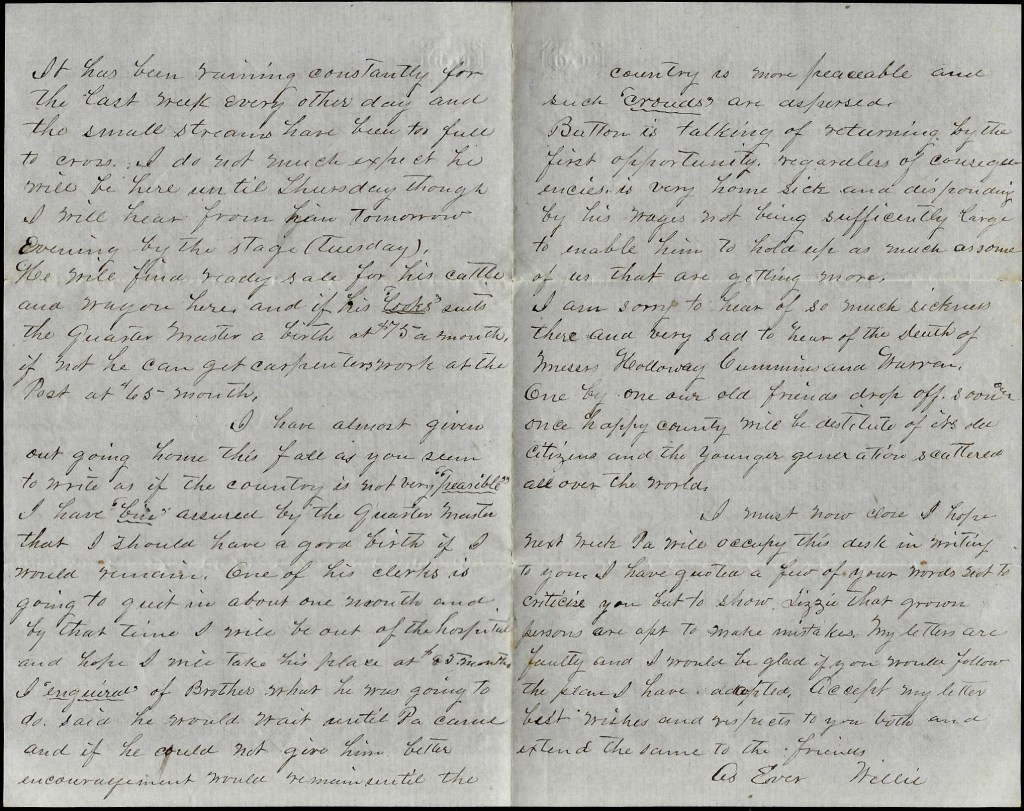 It has been raining constantly for
the last week every other day and
the small streams have been too full
to cross. I do not much expect he
will be here until Thursday though
I will hear from him tomorrow
Evening by the stage (Tuesday).
He will find ready sale for his cattle
and wagon here. and if his "Looks" suits
the Quarter Master a birth at $75 a month,
if not he can get carpenters work at the
Post at $65 month.
I have almost given
out going home this fall as you seem
to write as if the country is not very "peasible"
I have "bin" assured by the Quarter Master
that I should have a good birth if I
would remain. One of his clerks is
going to quit in about one month and
by that time I will be out of the hospital
and hope I will take his place at $85 month.
I "enquired" of Brother what he was going to
do. said he would wait until Pa came
and if he could not give him better
encouragement would remain until the
country is more peaceable and
such "crouds" are aspersed.
Button is talking of returning by the
first opportunity. regardless of consequ
encies. is very home sick and disponding
by his wages not being sufficiently large
to enable him to hold up as much as some
of us that are getting more.
I am sorry to hear of so much sickness
there and very sad to hear of the death of
Messrs Holloway Cummins and Warren.
One by one our old friends drop off. soon our
once happy county will be destitute of its old
Citizens and the Younger generation scattered
all over the world.
I must now close I hope
next week Pa will occupy this desk in writing
to you. I have quoted a few of your words not to
criticise you but to show Lizzie that grown
persons are apt to make mistakes. My letters are
faulty and I would be glad if you would follow
the plan I have adopted. Accept my letter
best wishes and respects to you both and
extend the same to the friends
As Ever Willie